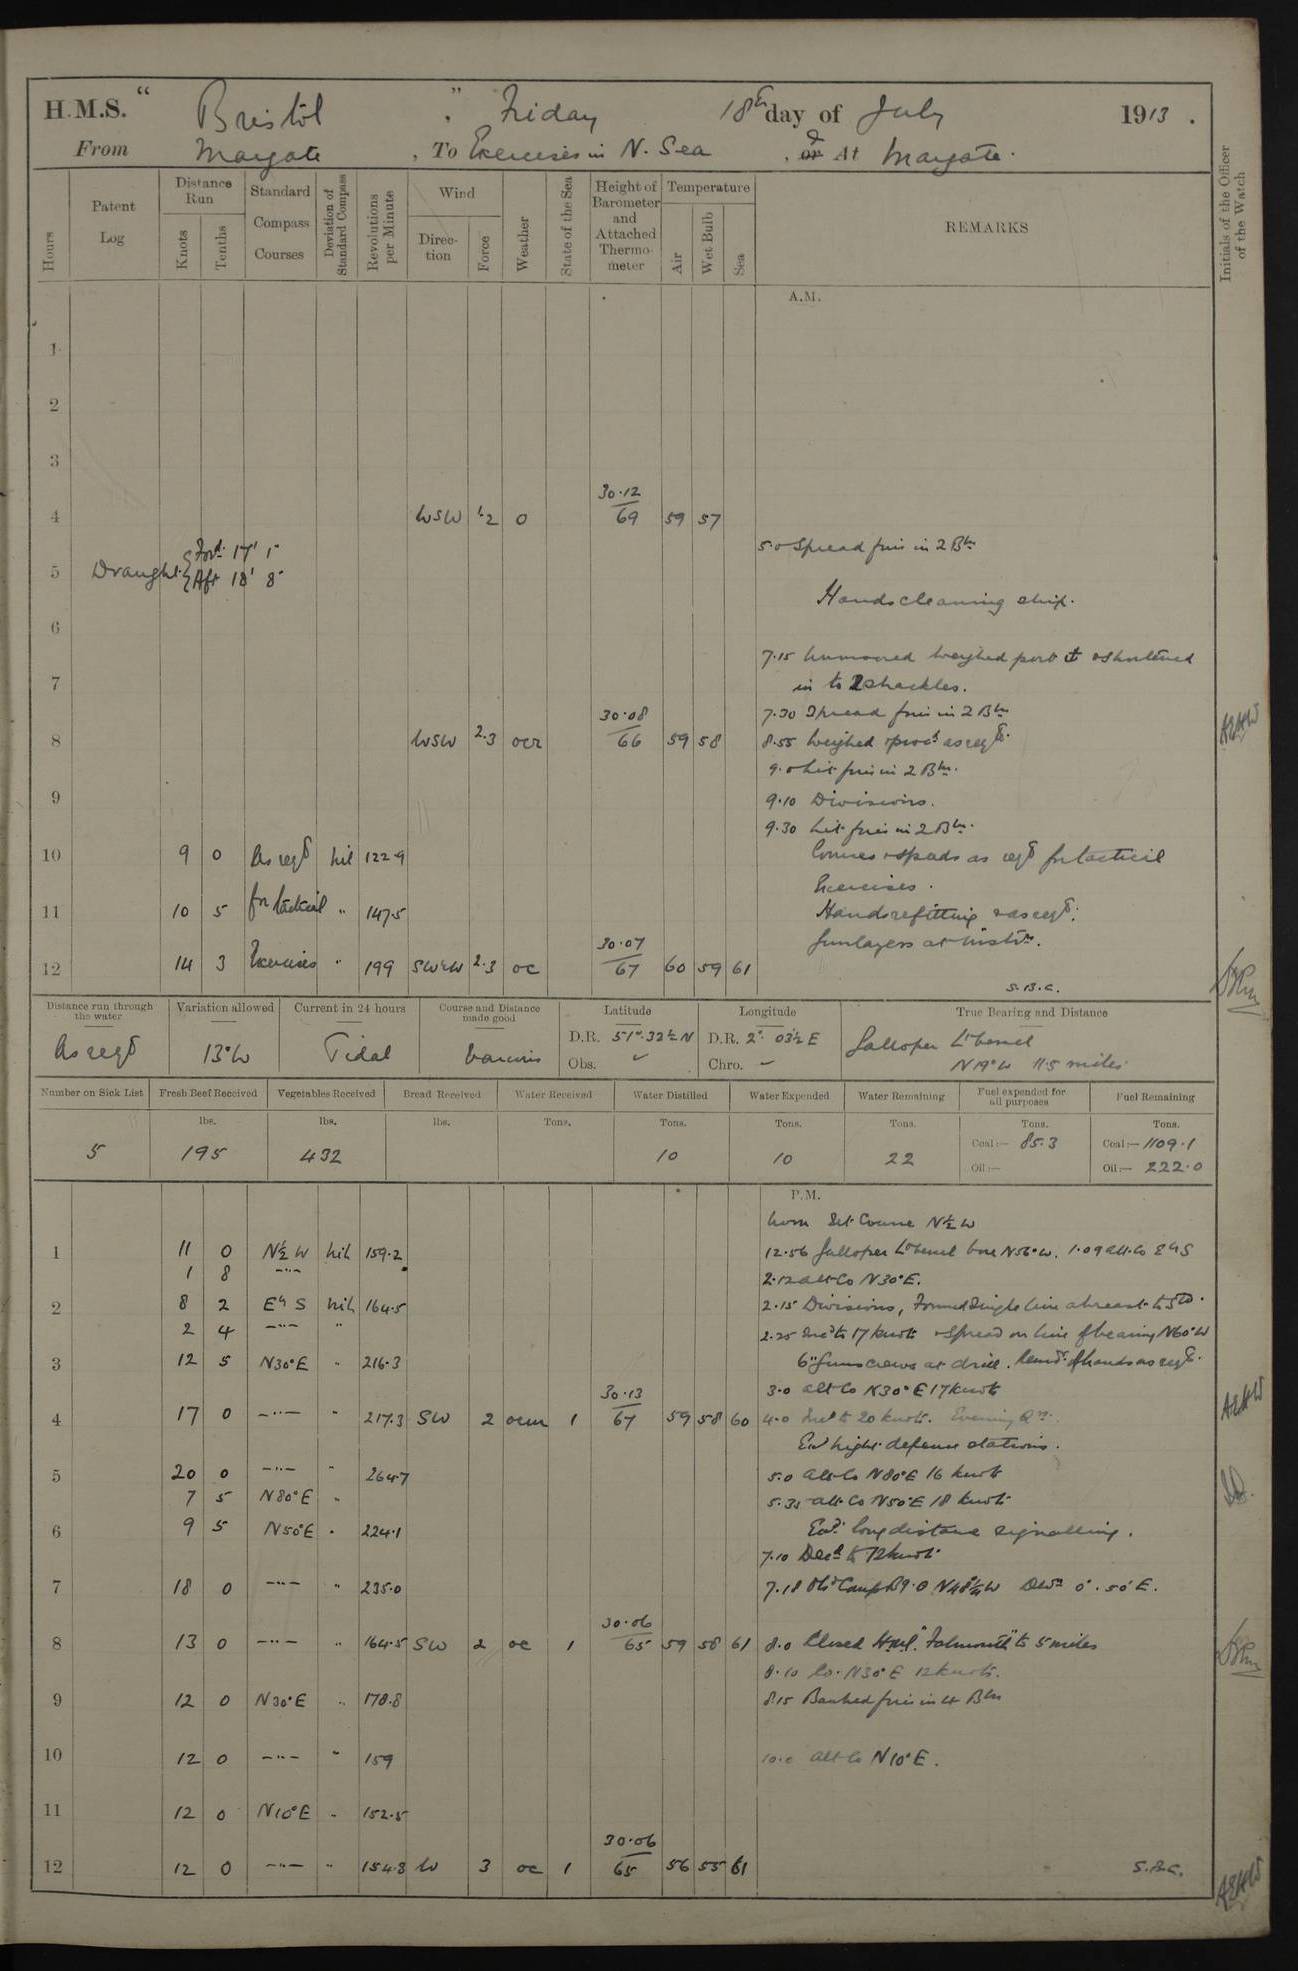 H.M.S. "Bristol", Friday 18th day of July 1913.
From Margate, To Exercises in N. Sea, & or At Margate.
Hours
Patent Log
Distance Run
Knots
Tenths
Standard Compass Courses
Deviation of Standard Compass
Revolutions per Minute
Wind
Direction
Force
Weather
State of the Sea
Height of Barometer and Attached Thermometer
Temperature
Air
Wet Bulb
Sea
REMARKS
Initials of the Officer of the Watch
A.M.
1
2
3
4 WSW 1.2 o 30.12/69 59 57
5.0 Spread fires in 2 Brs
5 Draught {Ford. 17' 1" {Aft 18' 8"
Hands cleaning ship.
6
7.15 Unmoored weighed port ⚓ & shortened
7 in to 2 shackles.
7.30 Spread fires in 2 Brs
8 WSW 2.3 ocr 30.08/66 59 58 8.55 Weighed & procd as reqd.
9.0 Lit fires in 2 Brs.
9 9.10 Divisions.
9.30 Lit fires in 2 Brs.
10 9 0 As reqd nil 122.9 Courses & speeds as reqd for tactical
Exercises.
11 10 5 for tactical " 147.5 Hands refitting & as reqd.
Gunlayers at Instrn.
12 14 3 Exercises " 199 SWxW 2.3 oc 30.07/67 60 59 61
S.B.C.
Distance run through the water
Variation allowed
Current in 24 hours
Course and Distance made good
Latitude
Longitude
True Bearing and Distance
As reqd 13°W Tidal Various D.R. 51°.32½ N D.R. 2°. 03½ E Galloper Lt Vessel
Obs. ✓ Chro. – N19°W 11.5 miles
Number on Sick List
Fresh Beef Received
Vegetables Received
Bread Received
Water Received
Water Distilled
Water Expended
Water Remaining
Fuel expended for all purposes
Fuel Remaining
lbs. lbs. lbs. Tons. Tons. Tons. Tons. Tons. Tons.
5 195 432 10 10 22 Coal:— 85.3 Coal:— 1109.1
Oil:— Oil:— 222.0
P.M.
Noon Set Course N½W
1 11 0 N½W nil 159.2 12.56 Galloper Lt vessel bore N56°W. 1.09 alt. Co EbyS
1 8 —"— 2.12 alt Co N30°E.
2 8 2 EbyS nil 164.5 2.15 Divisions, Formed Single line abreast to Std.
2 4 —"— " 2.25 Incd to 17 knots & Spread on line of bearing N60°W
3 12 5 N30°E " 216.3 6" Guns crews at drill. Remdr of hands as reqd.
3.0 alt Co N30°E 17 knots
4 17 0 —"— " 217.3 SW 2 ocm 1 30.13/67 59 58 60 4.0 Incd to 20 knots. Evening Qrs.
Exd night defence stations.
5 20 0 —"— " 264.7 5.0 alt Co N80°E 16 knots
7 5 N80°E " 5.35 alt Co N50°E 18 knots
6 9 5 N50°E " 224.1 Exd. long distance signalling.
7.10 Decd to 12 knots
7 18 0 —"— " 235.0
8 13 0 —"— " 164.5 SW 2 oc 1 30.06/65 59 58 61 8.0 Closed H.M.S. "Falmouth" to 5 miles
8.10 Co. N30°E 12 knots.
9 12 0 N30°E " 178.8 8.15 Banked fires in 4 Brs
10 12 0 —"— " 159 10.0 alt Co N10°E.
11 12 0 N10°E " 152.5
12 12 0 —"— " 154.8 W 3 oc 1 30.06/65 56 55 61 S.B.C.